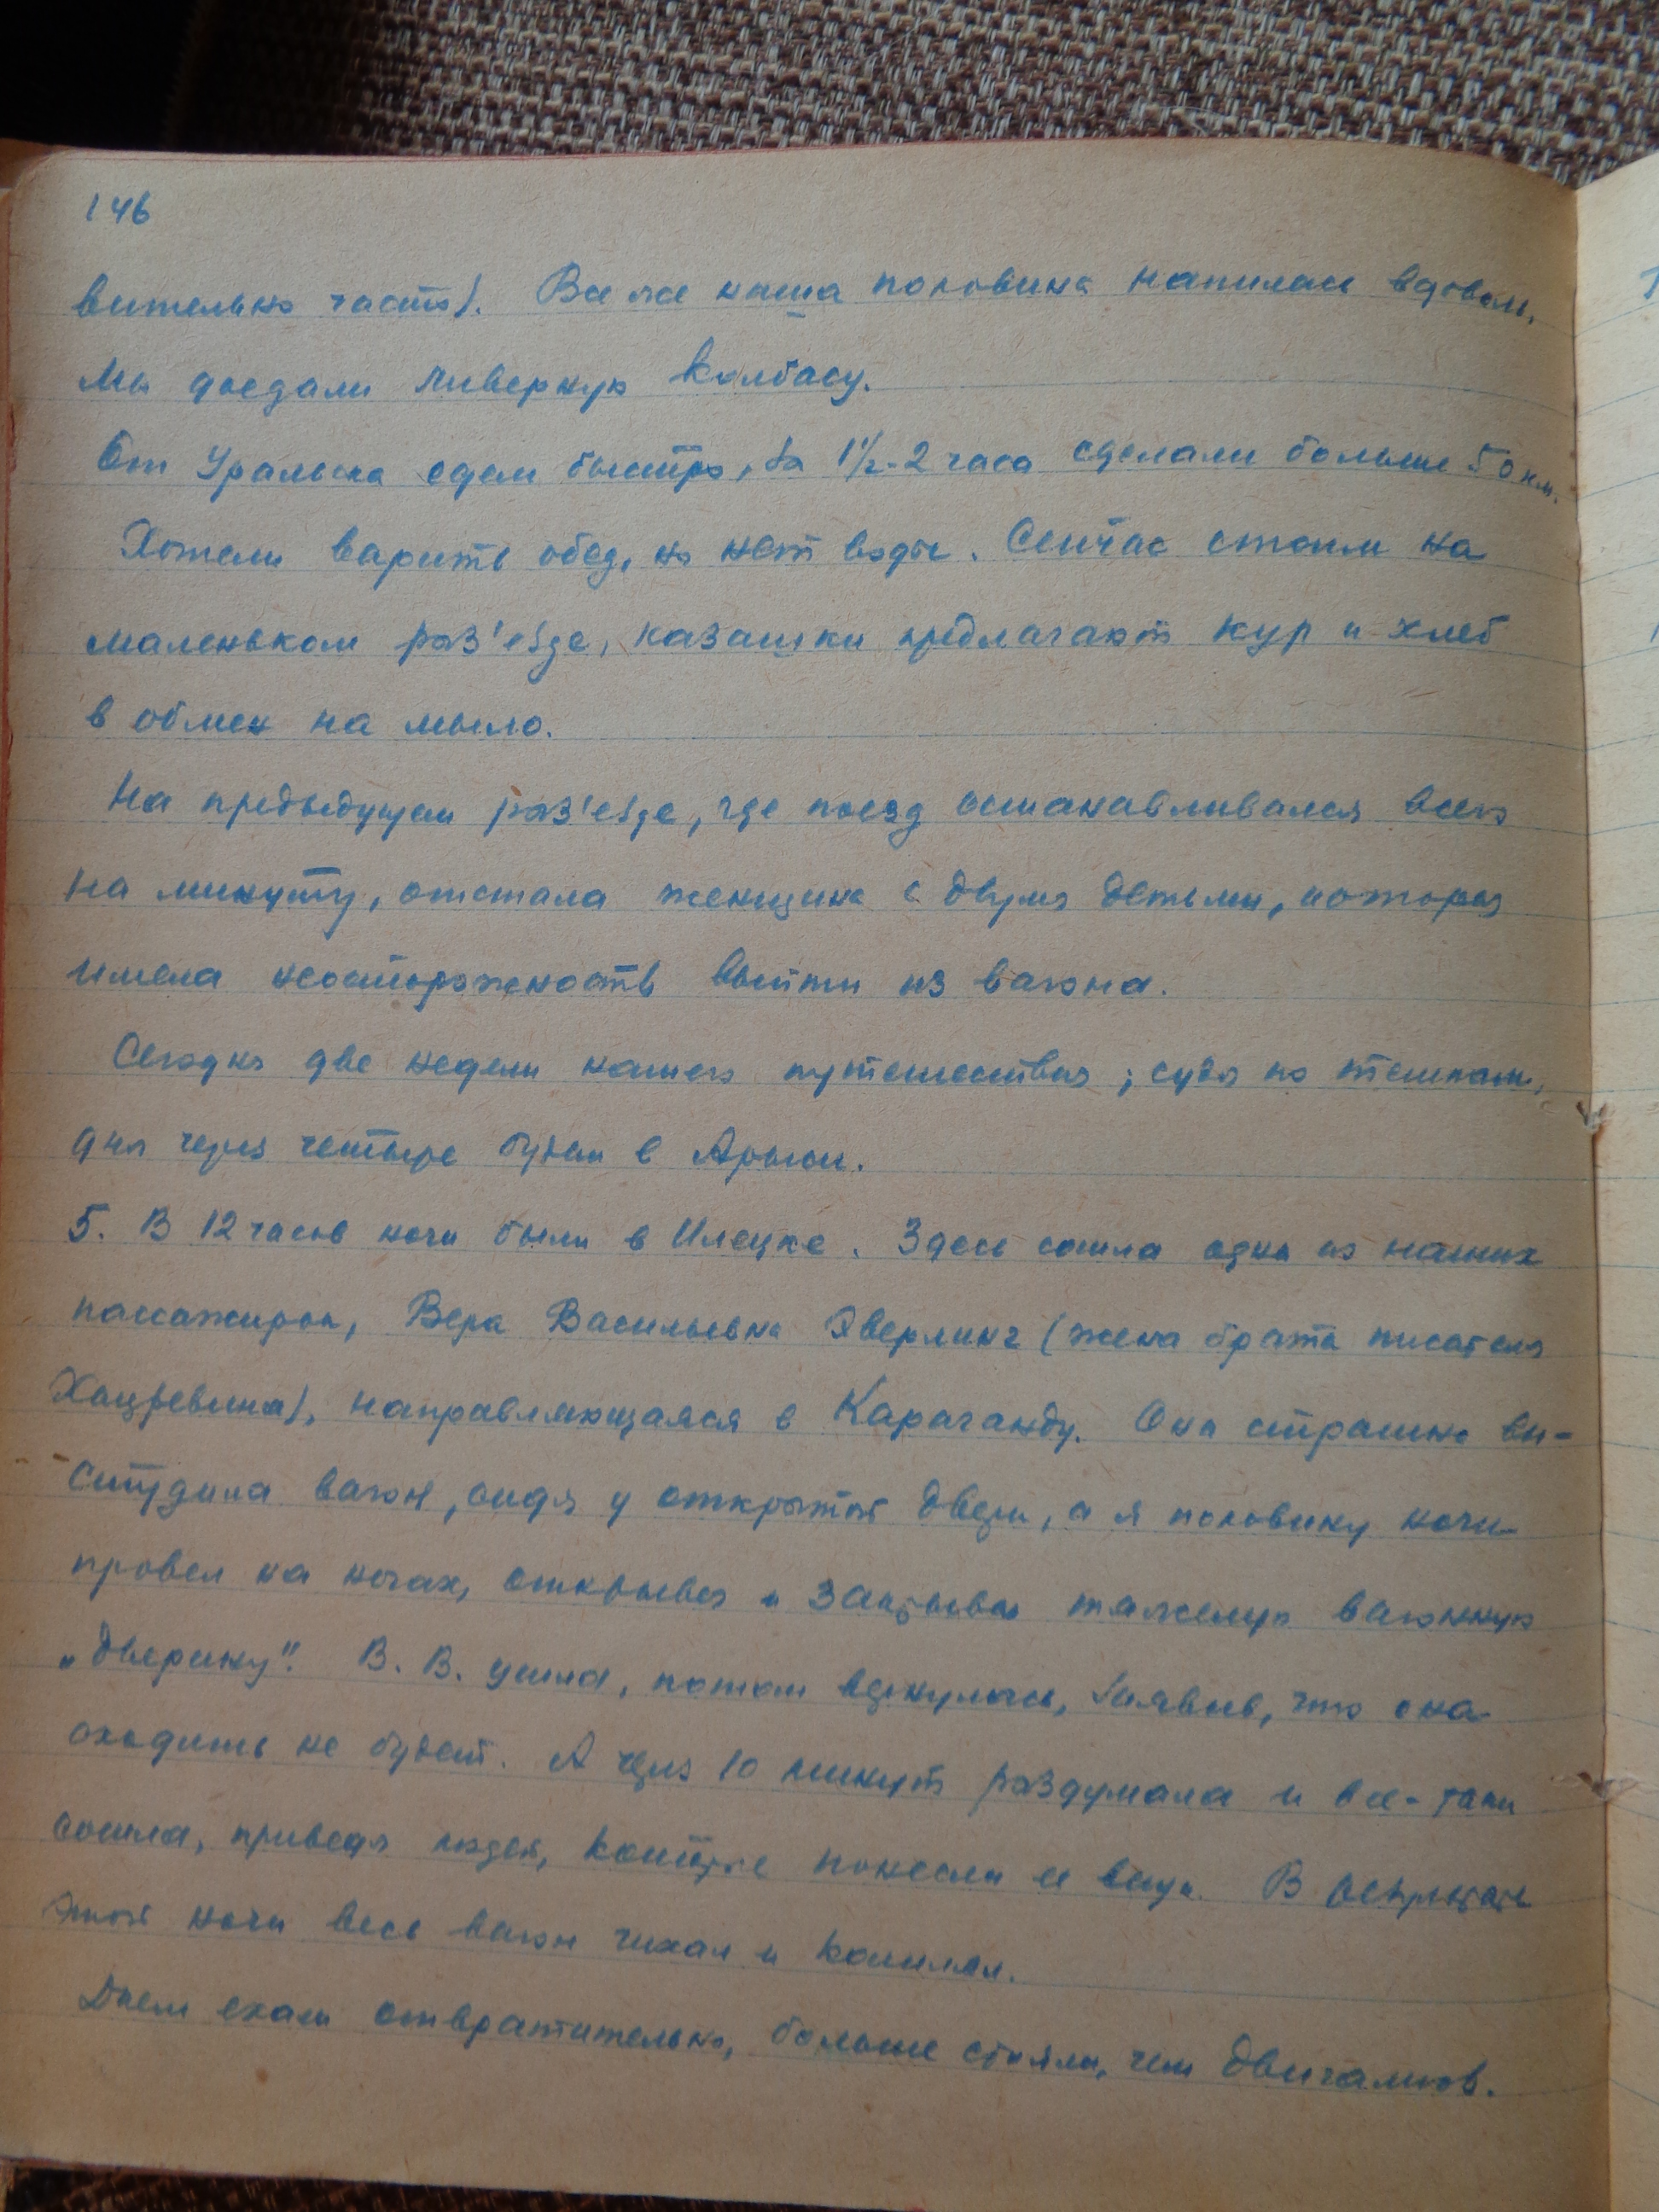 146
вительно часто). Все же наша половина напилась вдоволь.
Мы доедали ливерную колбасу.
От Уральска едем быстро, за 1½-2 часа сделали больше 50 км.
Хотели варить обед, но нет воды. Сейчас стоим на
маленьком раз'езде, казашки предлагают кур и хлеб
в обмен на мыло.
На предыдущем раз'езде, где поезд останавливался всего
на минуту, отстала женщина с двумя детьми, которая
имела неосторожность выйти из вагона.
Сегодня две недели нашего путешествия; судя по темпам,
дня через четыре будем в Арыси.
5. В 12 часов ночи были в Илецке. Здесь сошла одна из наших
пассажирок, Вера Васильевна Эверлинг (жена брата писателя
Хацревина), направляющаяся в Караганду. Она страшно вы-
студила вагон, сидя у открытой двери, а я половину ночи
провел на ногах, открывая и закрывая тяжелую вагонную
„дверину". В. В. ушла, потом вернулась, заявив, что она
сходить не будет. А через 10 минут раздумала и все-таки
сошла, приведя людей, которые понесли ее вещи. В результате
этой ночи весь вагон чихал и кашлял.
Днем ехали отвратительно, больше стояли, чем двигались.